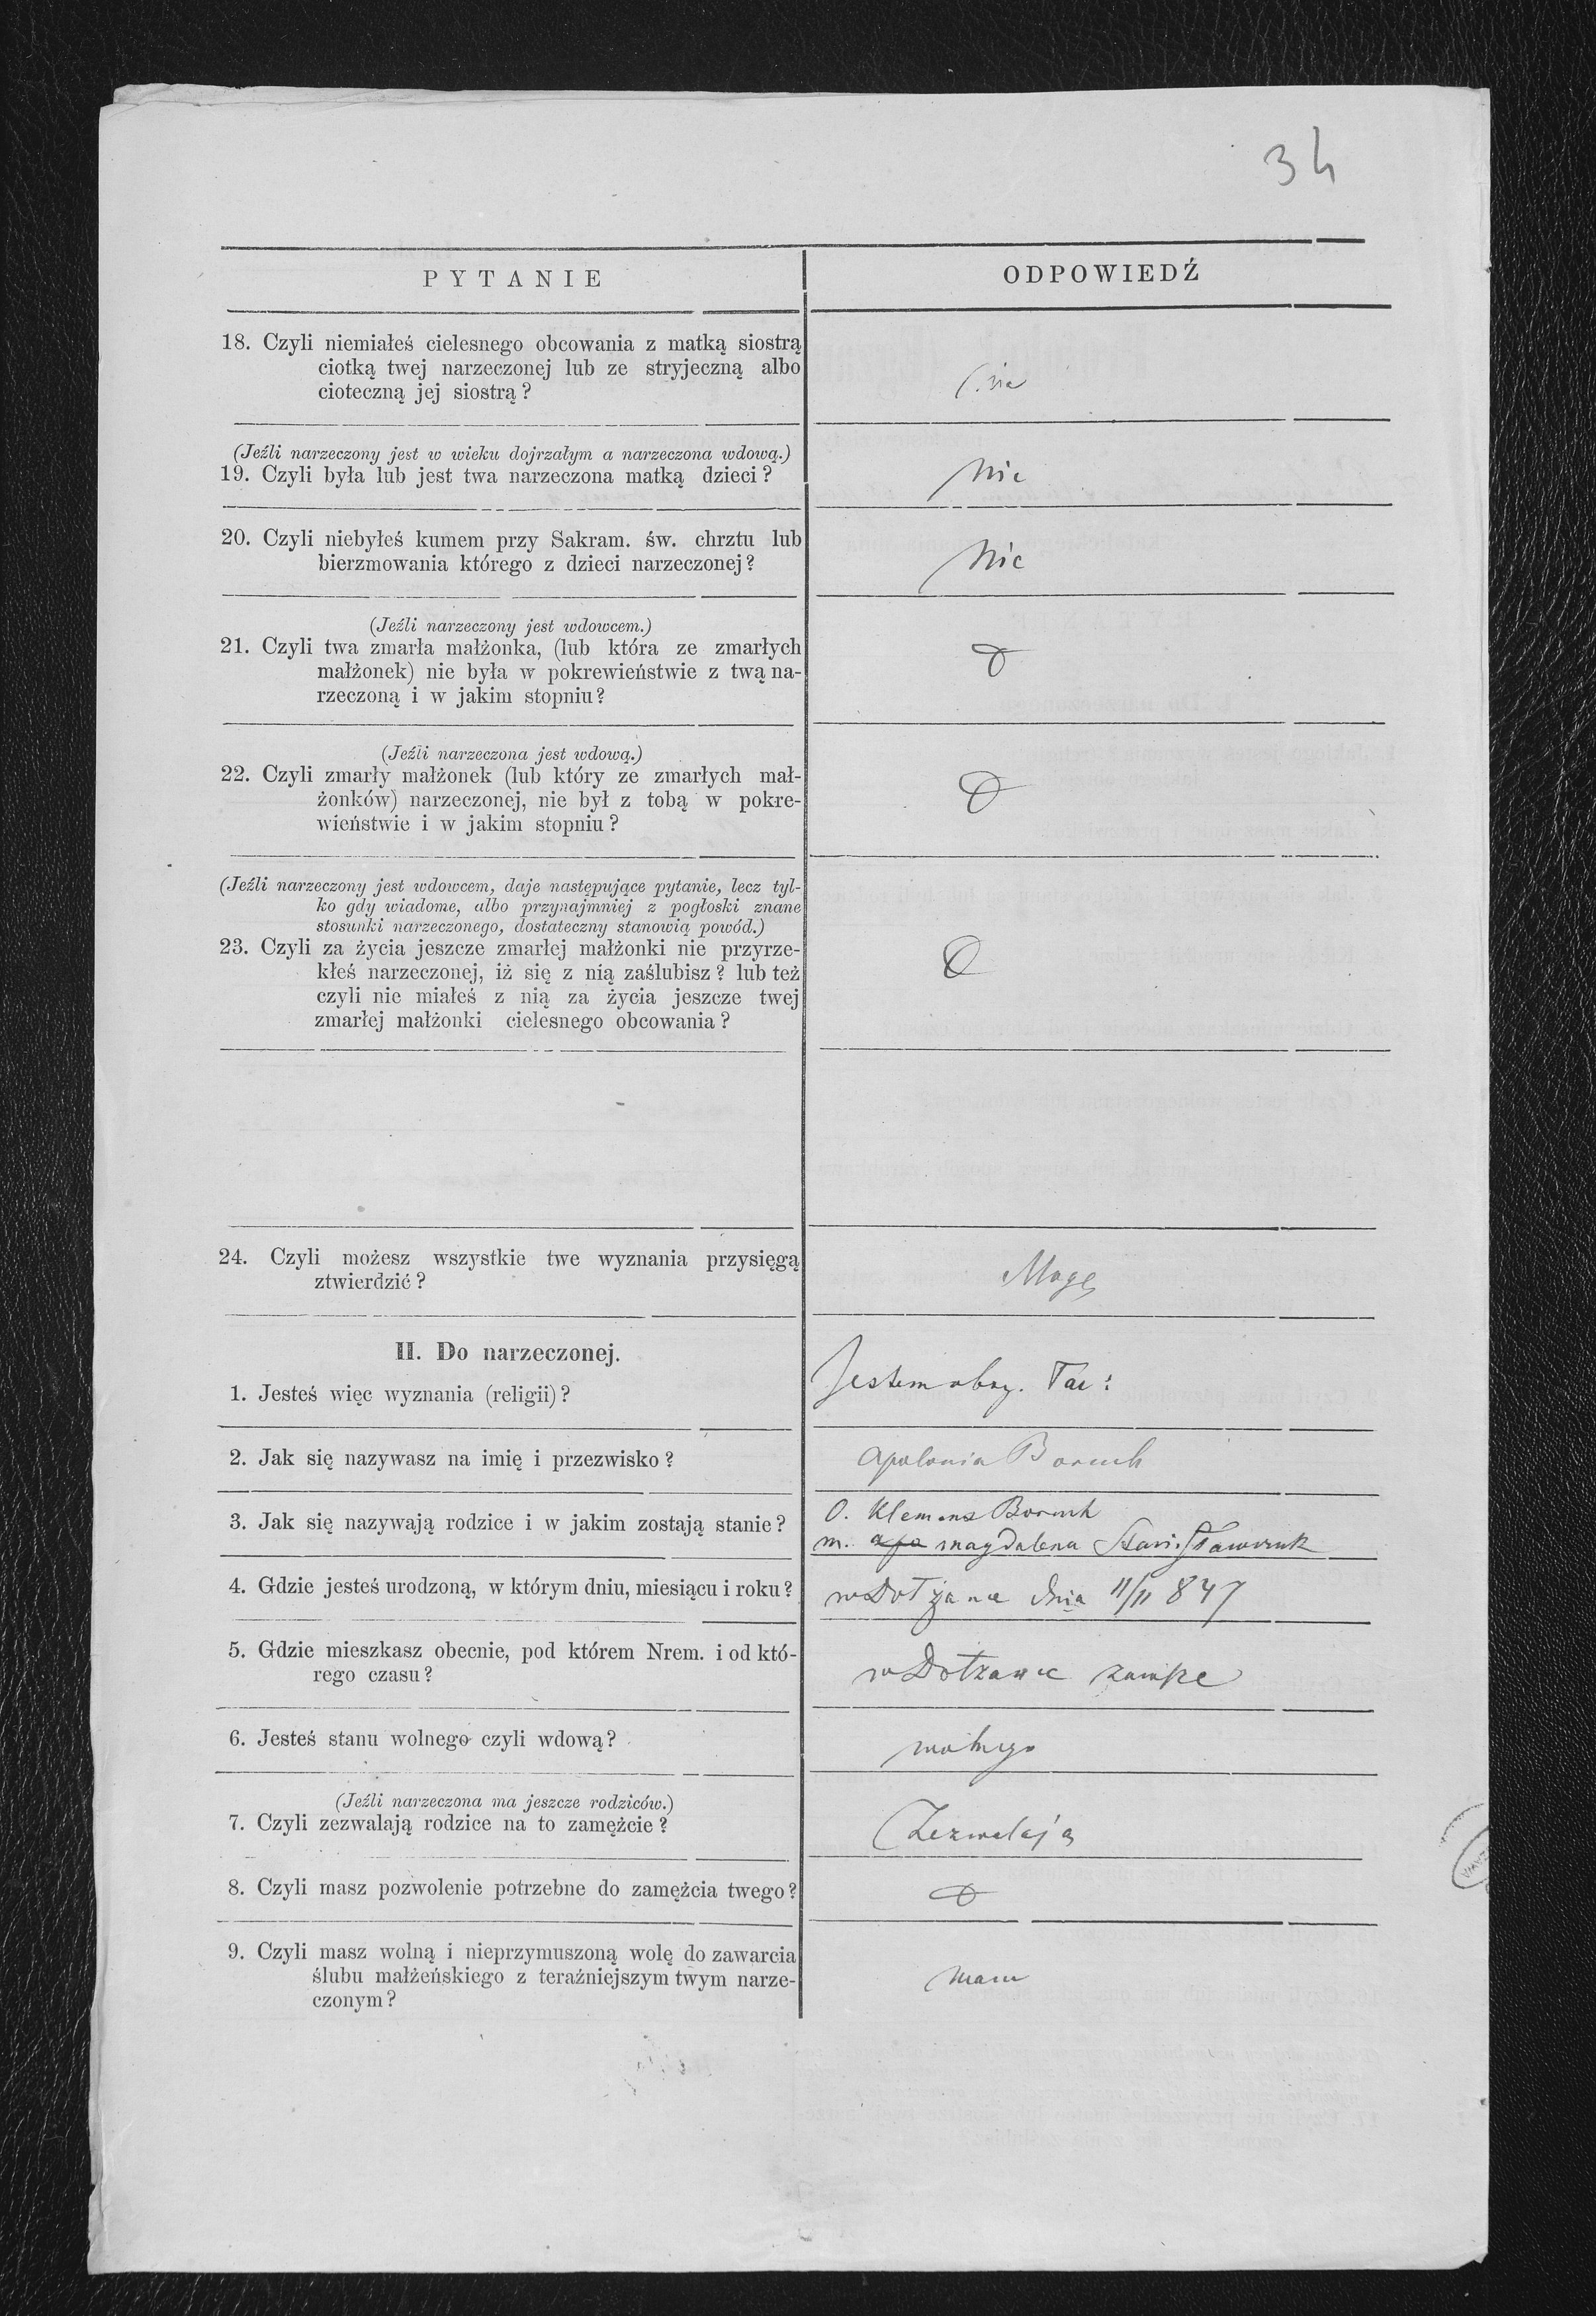 34
PYTANIE
ODPOWIEDŹ
18. Czyli niemiałeś cielesnego obcowania z matką siostrą
ciotką twej narzeczonej lub ze stryjeczną albo
cioteczną jej siostrą?
nie
(Jeźli narzeczony jest w wieku dojrzałym a narzeczona wdową.)
19. Czyli była lub jest twa narzeczona matką dzieci?
Nie
20. Czyli niebyłeś kumem przy Sakram. św. chrztu lub
bierzmowania którego z dzieci narzeczonej?
Nie
(Jeźli narzeczony jest wdowcem.)
21. Czyli twa zmarła małżonka, (lub która ze zmarłych
małżonek) nie była w pokrewieństwie z twą na-
rzeczoną i w jakim stopniu?
(Jeźli narzeczona jest wdową.)
22. Czyli zmarły małżonek (lub który ze zmarłych mał-
żonków) narzeczonej, nie był z tobą w pokre-
wieństwie i w jakim stopniu?
(Jeźli narzeczony jest wdowcem, daje następujące pytanie, lecz tyl-
ko gdy wiadome, albo przynajmniej z pogłoski znane
stosunki narzeczonego, dostateczny stanowią powód.)
23. Czyli za życia jeszcze zmarłej małżonki nie przyrze-
kłeś narzeczonej, iż się z nią zaślubisz? lub też
czyli nie miałeś z nią za życia jeszcze twej
zmarłej małżonki cielesnego obcowania?
24. Czyli możesz wszystkie twe wyznania przysięgą
ztwierdzić?
Mogę
II. Do narzeczonej.
1. Jesteś więc wyznania (religii)?
Jestem obrz. łac:
2. Jak się nazywasz na imię i przezwisko?
Apolonia Boruch
3. Jak się nazywają rodzice i w jakim zostają stanie?
O. Klemens Boruch
m. apo magdalena Stanisławczuk
4. Gdzie jesteś urodzoną, w którym dniu, miesiącu i roku?
w Dołżance dnia 11/11 847
5. Gdzie mieszkasz obecnie, pod którem Nrem. i od któ-
rego czasu?
w Dołżance zawsze
6. Jesteś stanu wolnego czyli wdową?
wolnego
(Jeźli narzeczona ma jeszcze rodziców.)
7. Czyli zezwalają rodzice na to zamężcie?
Zezwalają
8. Czyli masz pozwolenie potrzebne do zamężcia twego?
9. Czyli masz wolną i nieprzymuszoną wolę do zawarcia
ślubu małżeńskiego z teraźniejszym twym narze-
czonym?
mam